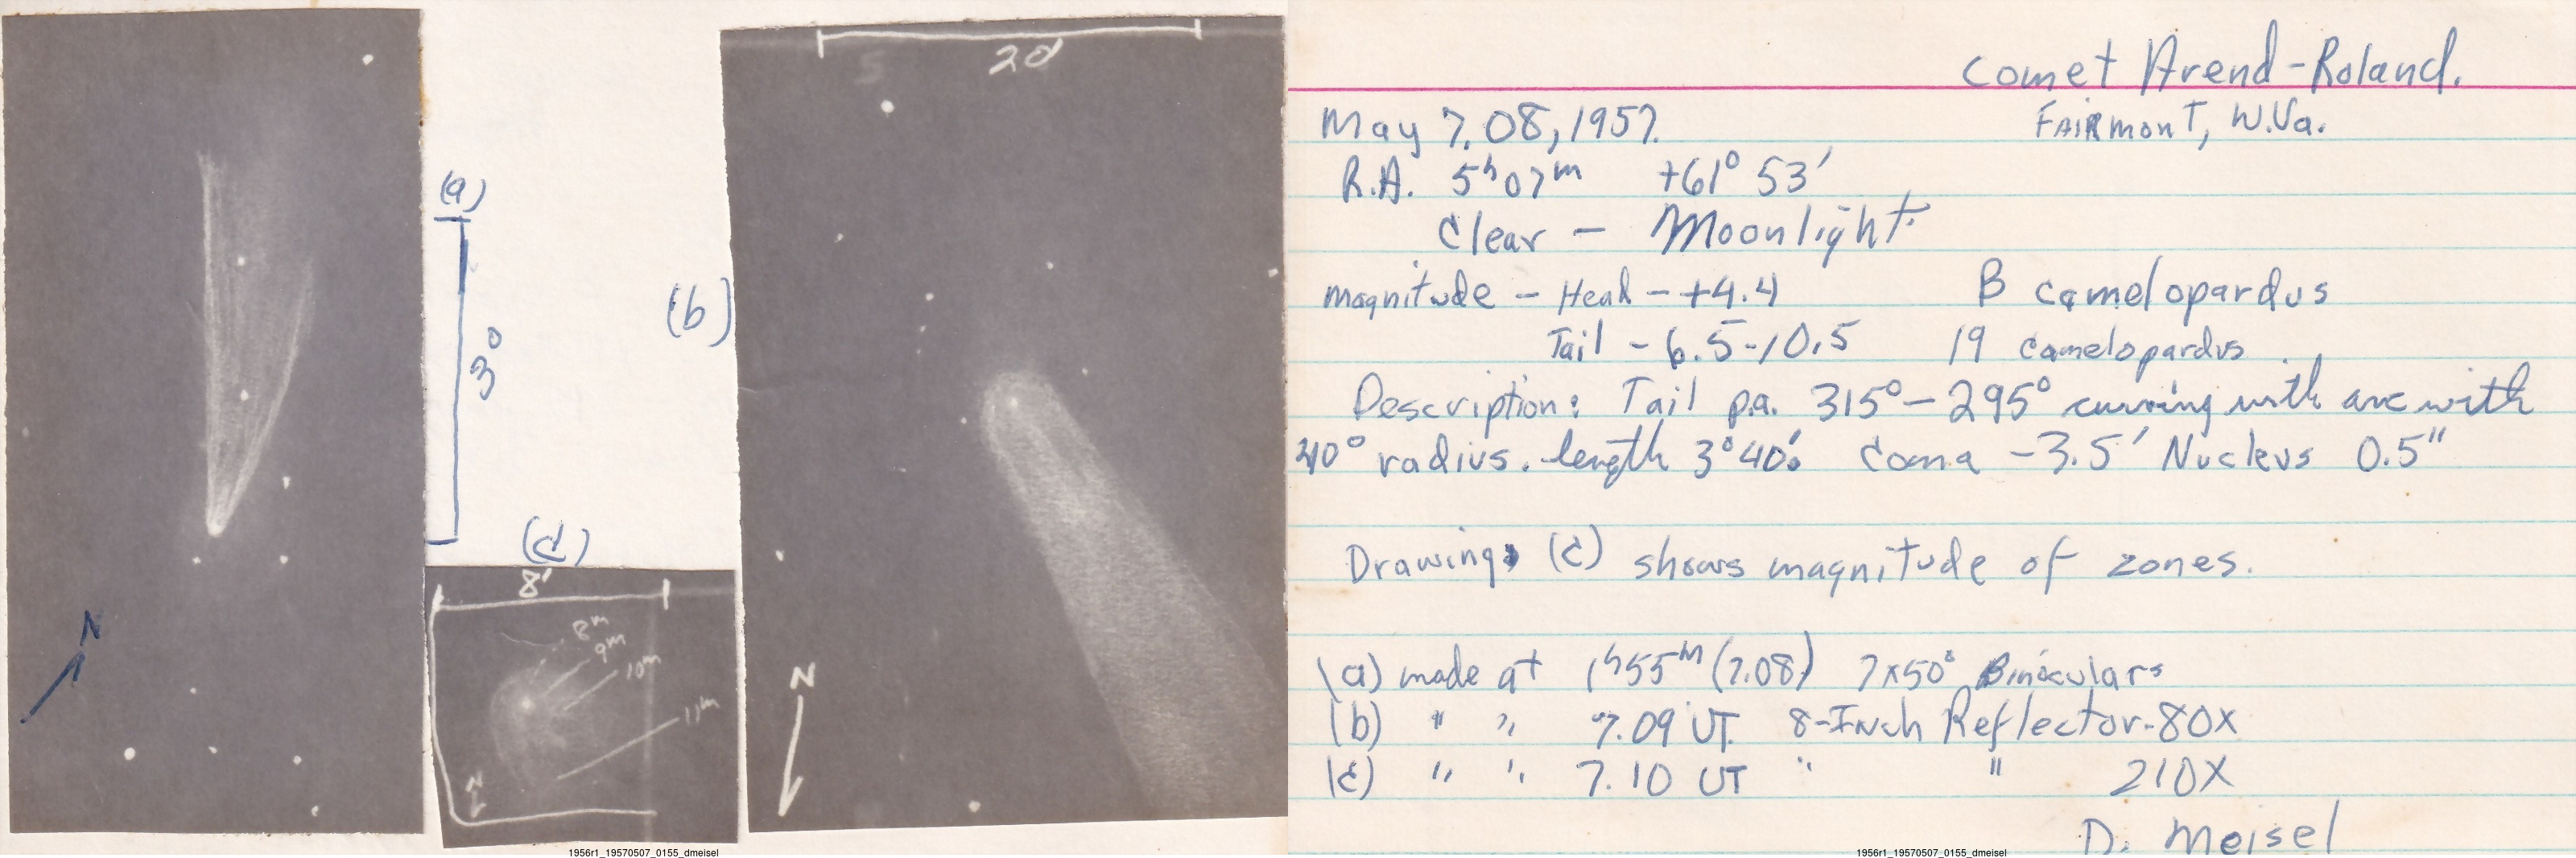 (a)
3°
N
(d)
8'
8m
9m
10m
11m
N
(b)
20'
N
1956r1_19570507_0155_dmeisel
Comet Arend-Roland.
May 7.08, 1957. Fairmont, W.Va.
R.A. 5h07m +61° 53'
Clear - Moonlight.
magnitude - Head - +4.4 B camelopardus
Tail - 6.5-10.5 19 camelopardus
Description: Tail p.a. 315°-295° curving with arc with
40° radius. length 3°40'. Coma - 3.5' Nucleus 0.5"
Drawing (c) shows magnitude of zones.
(a) made at 1h55m (7.08) 7x50 Binoculars
(b) " " 7.09 UT. 8-Inch Reflector-80X
(c) " " 7.10 UT " " 210X
D. Meisel
1956r1_19570507_0155_dmeisel